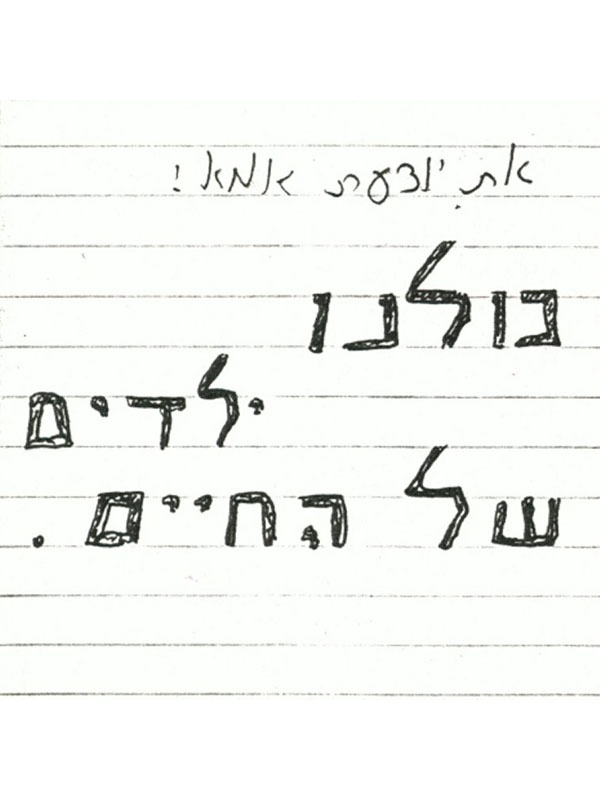 את יודעת אמא!
כולנו
ילדים
של החיים.